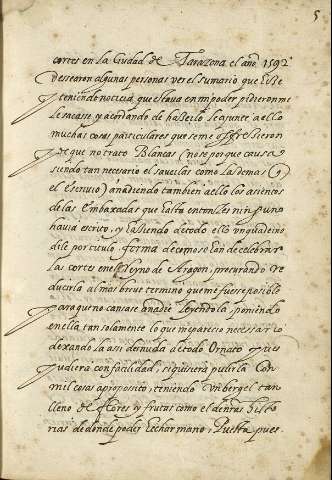 5
cortes en la Ciudad de Tarazona el año 1592
dessearon algunas personas ver el sumario que hize
teniendo noticia que estava en mi poder pidieronme
le sacase, y acordando de hazerlo le ajunte a ello
muchas cosas particulares que se me offrescieron
que no trato Blancas (no se porque causa
siendo tan necesario el saverlas como las demas q
el escrivio) añadiendo tambien a ello los asientos
de las Embaxadas que hasta entonces ninguno
havia escrito, y haziendo de todo ello un qualerno
dile por titulo forma de como se han de celebrar
las cortes en el Reyno de Aragon, procurando re
ducirla al mas breve termino que me fuese posible
para que no cansase a nadie leyendola, poniendo
en ella tan solamente lo que me parecio necessario
dexandola assi desnuda de todo Ornato, que
pudiero con facilidad, si quisiera pulirla con
mil cosas a proposito, teniendo un bergel tan
lleno de flores y frutas como el de nras histo
rias de donde poder hechar mano, Puesta pues